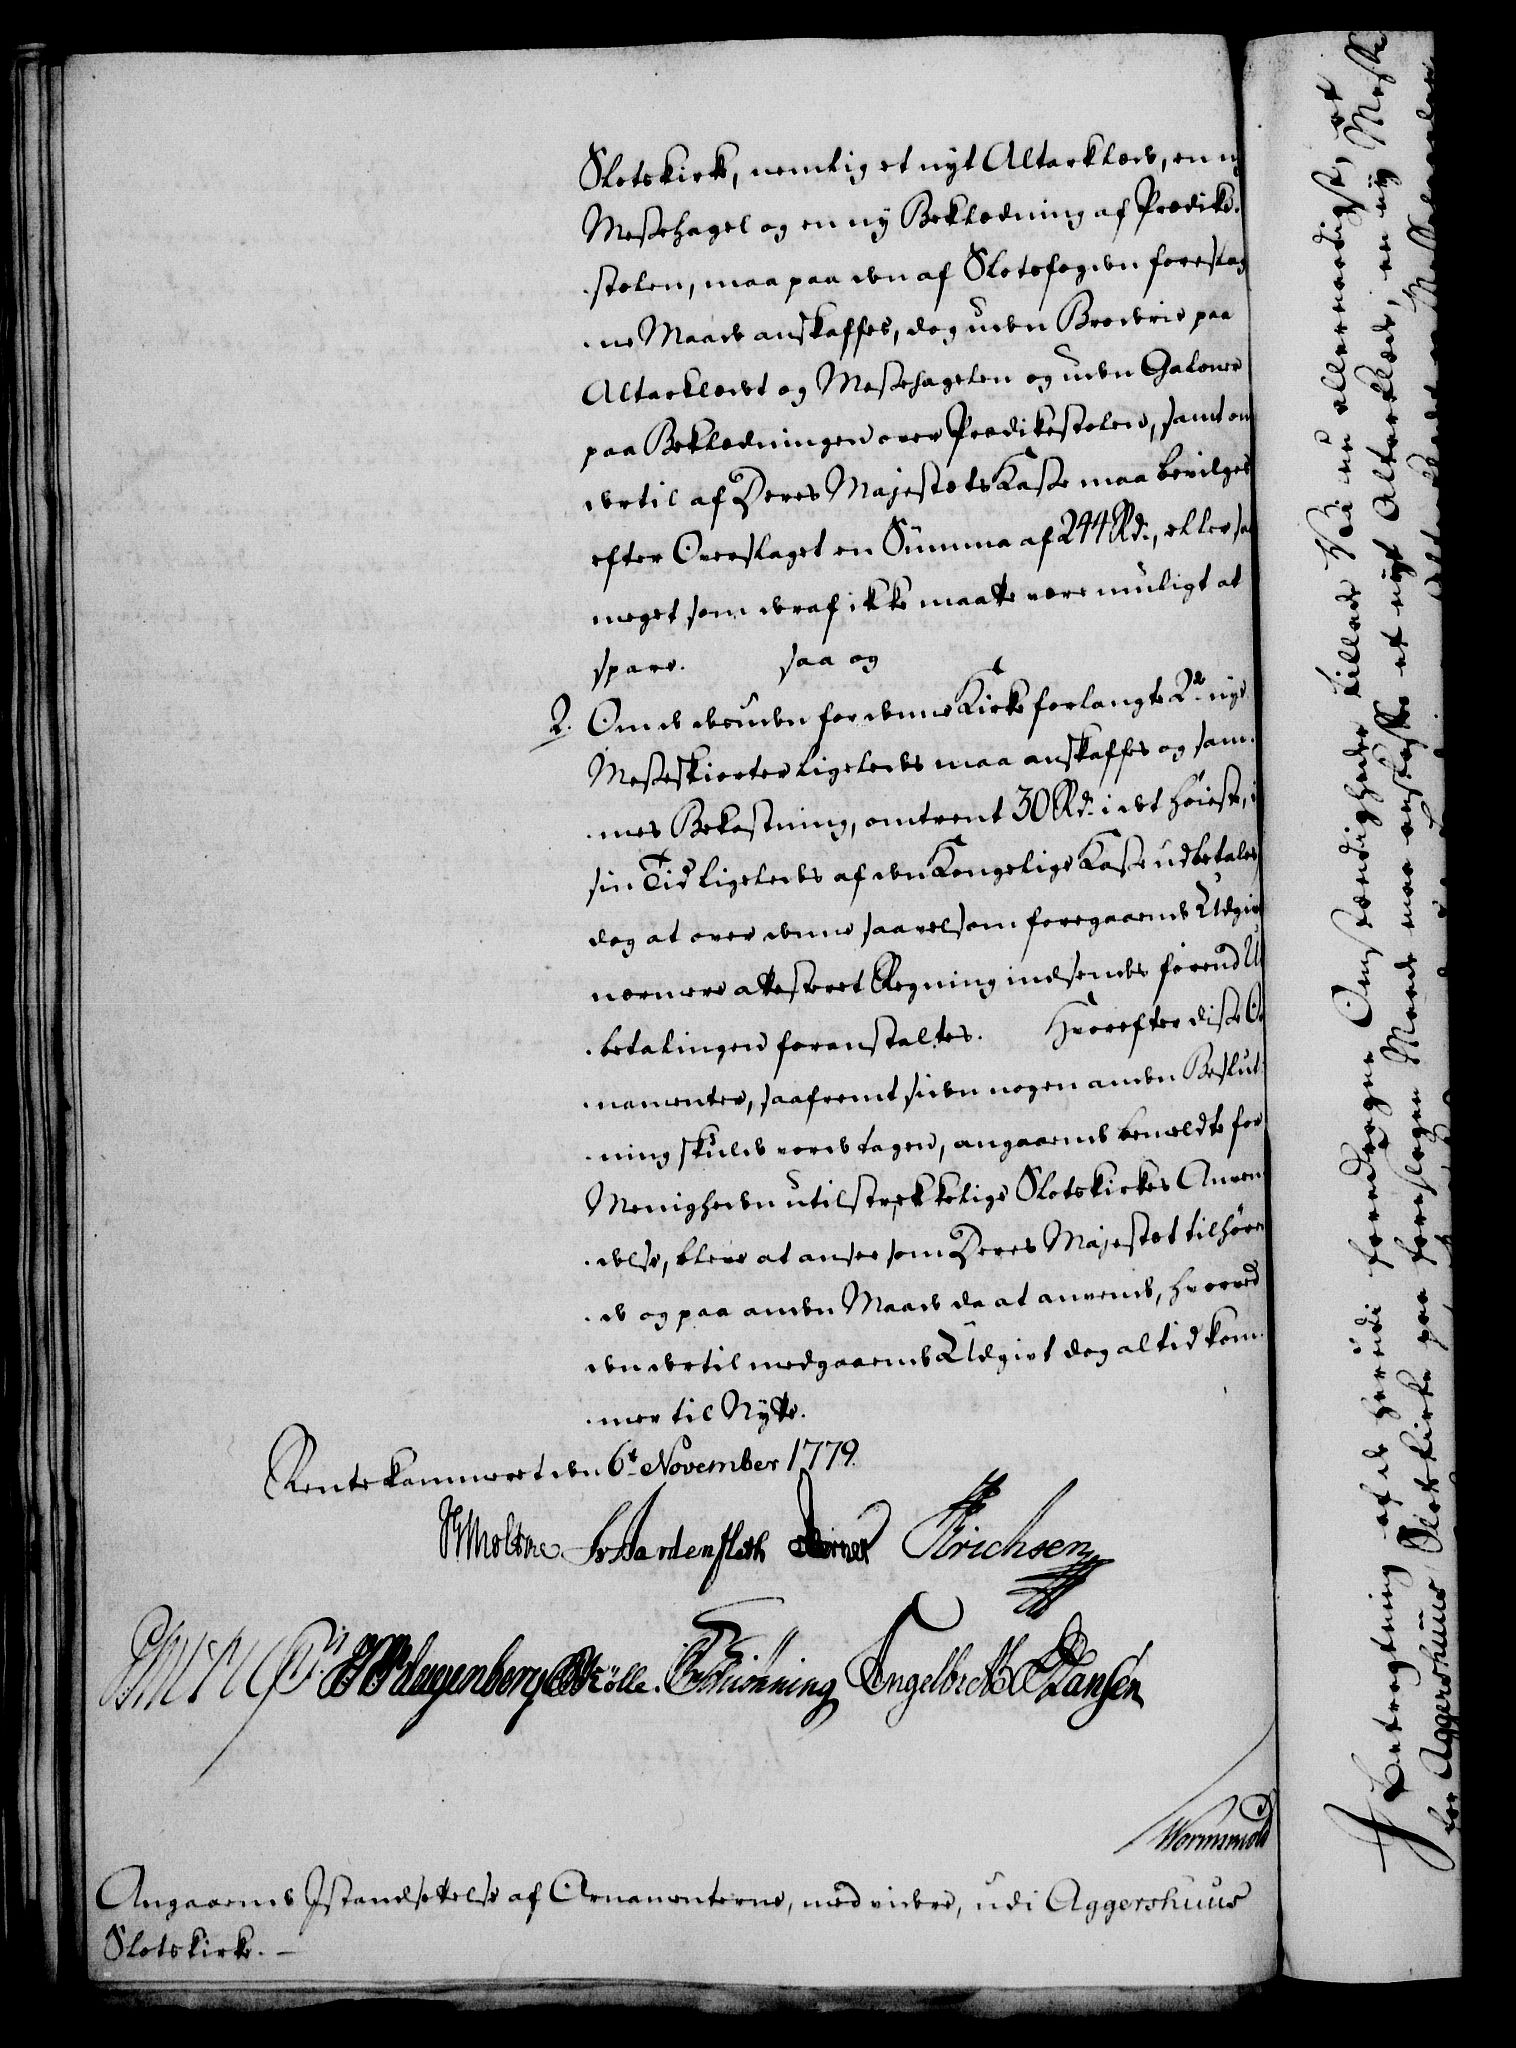 Slotskirke, nemlig et nyt Altarklæde, en n
Messehagel og en ny Beklædning af Prædike-
stolen, maa paa den af Slotsfogden foreslag
ne Maade anskaffes, dog uden Broderie paa
Altarklædet og Messehagelen og uden Galoner
paa Beklædningen over Prædikestolen, samt om
dertil af Deres Majestæts Kasse maa bevilges
efter Overslaget en Summa af 244 Rd:, eller saa
meget som deraf ikke maatte være muligt at
spare. saa og
2. Om de desuden for denne Kirke forlangte 2de nye
Messeskiorter ligeledes maa anskaffes og sam-
mes Bekostning, omtrent 30 Rd: i det høieste, i
sin Tid ligeledes af den Kongelige Kasse udbetales
dog at over denne saavelsom foregaaende Udgivt
nærmere attesteret Regning indsendes førend Ud
betalingen foranstaltes. Hvorefter disse Or
namenter, saafremt siden nogen anden Beslut-
ning skulde vorde tagen, angaaende bemeldte for
Menigheden utilstrekkelige Slotskirkes Anven-
delse, bleve at ansee som Deres Majestæt tilhøren
de og paa anden Maade da at anvende, hvorved
den dertil medgaaende Udgivt dog altid kom-
mer til Nytte.
Rentekammeret den 6t November 1779.
Moltke. Ir Hardenfleth Berner Erichsen
Meugenberg Mölle. Schiønning Engelbreth Hansen
Wormskiold
Angaaende Istandsettelse af Ornamenterne, med videre, udi Aggershuus
Slotskirke. —
I Betragtning af de herudi foredragne Omstændigheder tillade Vi allernaadigst, at
for Aggershuus Slotskirke paa foreslagen Maade maa anskaffes et nyt Alterklæde, en ny Messe